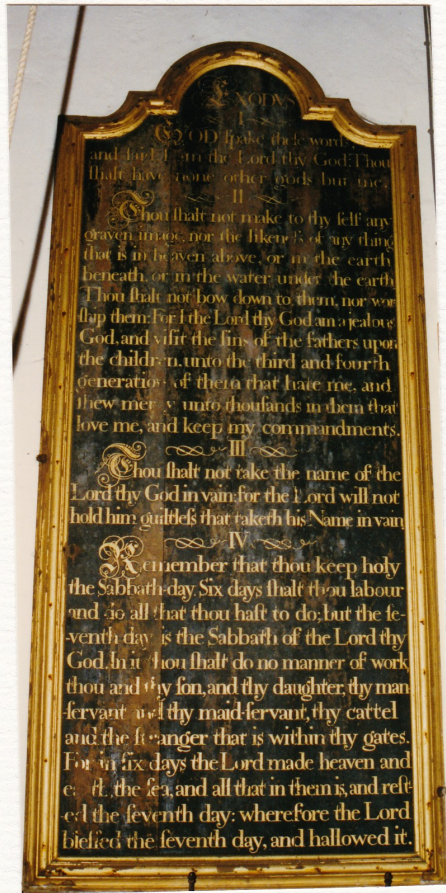 EXODVS
I
GOD spake these words,
and said I am the Lord thy God: Thou
shalt have none other gods but me.
II
Thou shalt not make to thy self any
graven image, nor the likeness of any thing
that is in heaven above, or in the earth
beneath, or in the water under the earth
Thou shalt not bow down to them, nor wor
ship them: For I the Lord thy God am a jealous
God, and visit the sins of the fathers upon
the children, unto the third and fourth
generation of them that hate me, and
shew mercy unto thousands in them that
love me, and keep my commandments.
III
Thou shalt not take the name of the
Lord thy God in vain: for the Lord will not
hold him guiltless that taketh his Name in vain
IV
Remember that thou keep holy
the Sabbath-day. Six days shalt thou labour
and do all that thou hast to do; but the se-
-venth day is the Sabbath of the Lord thy
God. In it thou shalt do no manner of work
thou and thy son, and thy daughter, thy man-
-servant and thy maid-servant, thy cattel
and the stranger that is within thy gates.
For in six days the Lord made heaven and
earth, the sea, and all that in them is, and rest-
-ed the seventh day: wherefore the Lord
blessed the seventh day, and hallowed it.